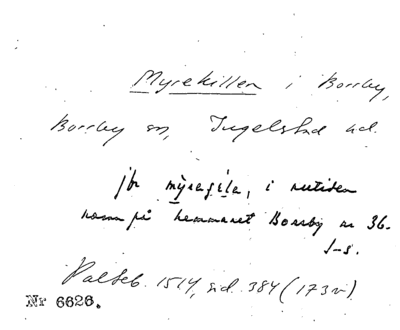 Myrekillen i Borrby,
Borrby sn, Ingelstad hd.
jfr myragila, i nutiden
namn på hemmanet Borrby nr 36.
J-s.
Palteb. 1514, sid. 384 (173v)
Nr 6626.